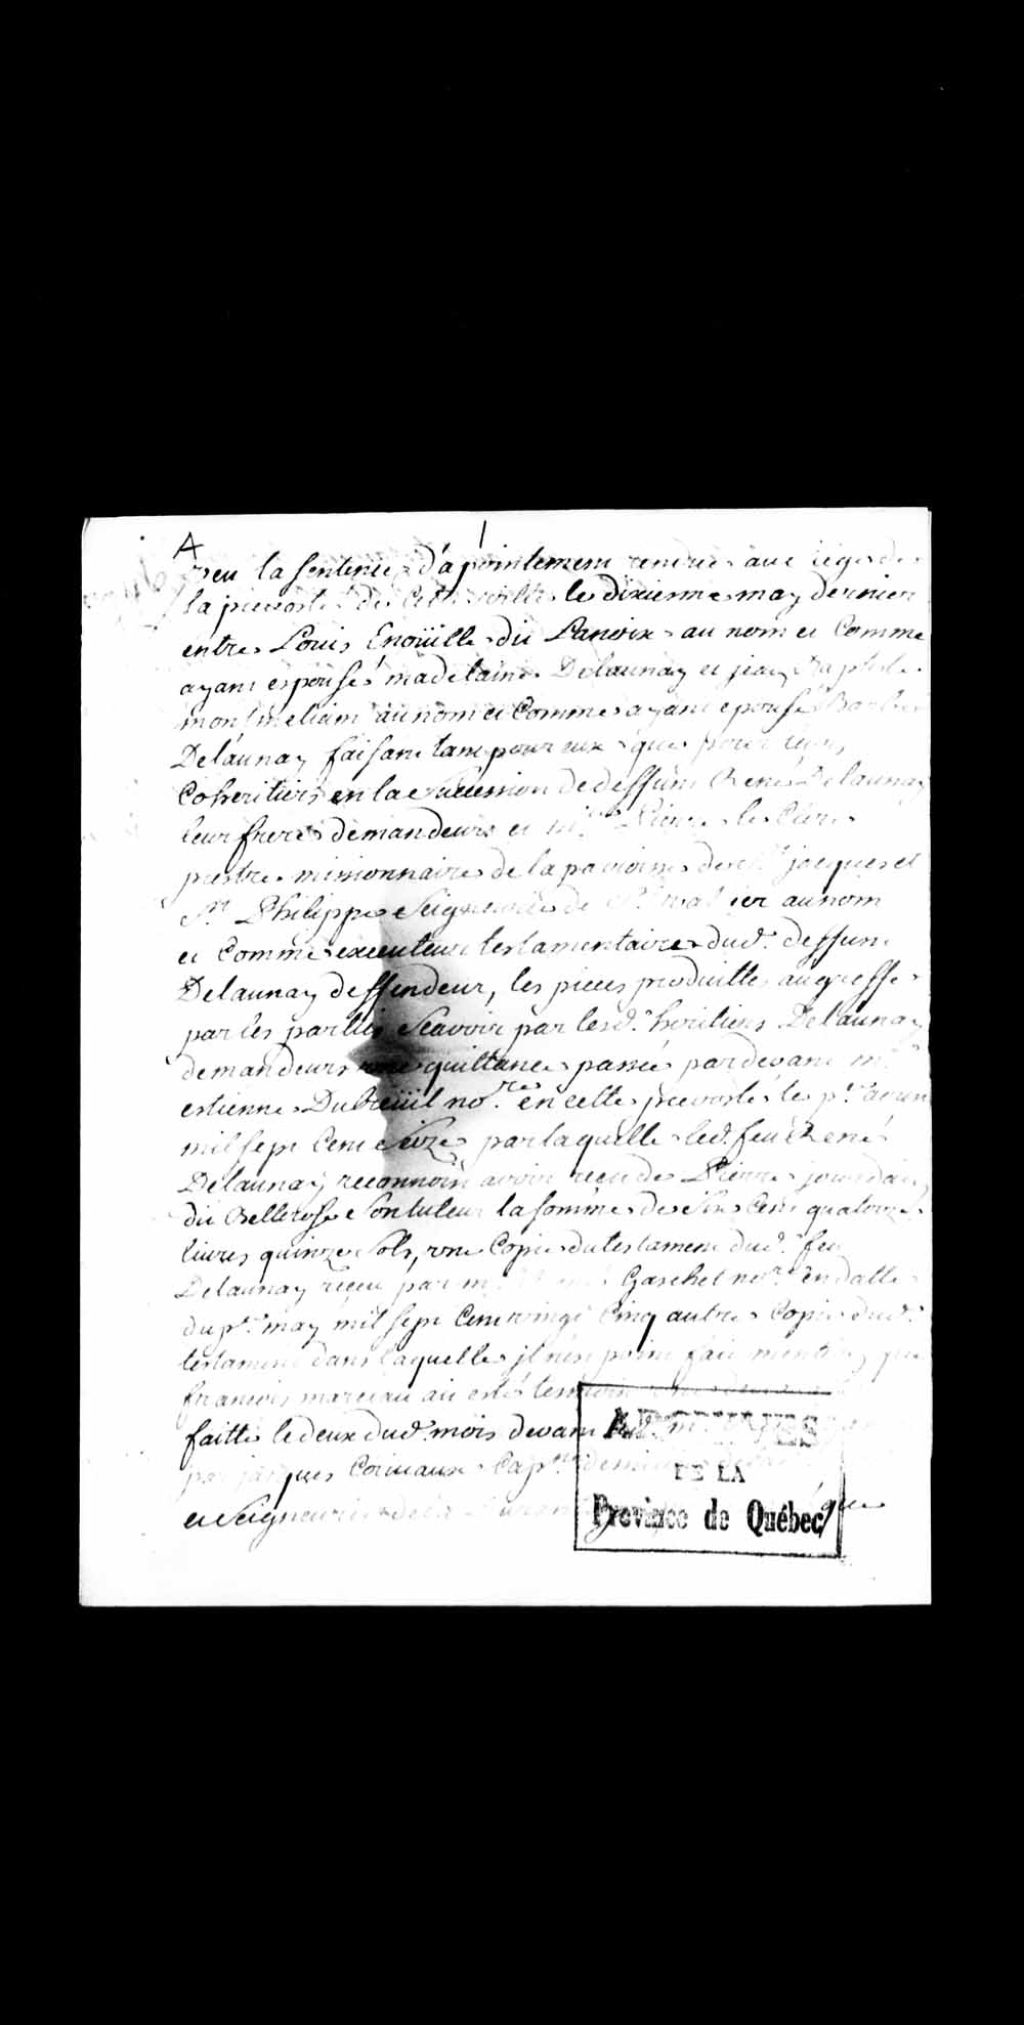 A
1
veu la sentence d'apointement rendue au siege de
la prevosté de cette ville le dixieme may dernier
entre Louis Enoüille dit Lanoix au nom et comme
ayant espousé madelaine Delaunay et jean Baptiste
monmeliam au nom et comme ayant epousé Barbe
Delaunay faisant tant pour eux que pour leurs
Coheritiers en la succession de deffunt René Delaunay
leur frere demandeurs et Mre Pierre le Clerc
prestre missionnaire de la paroisse de St jacques et
St Philippe Seigneurie de St vallier au nom
et comme executeur testamentaire dud. deffunt
Delaunay deffendeur, les pieces produittes au greffe
par les parties Scavoir par lesd. heritiers Delaunay
demandeurs une quittance passée pardevant me
estienne Dubreüil nore. en cette prevosté le pr. avril
mil sept Cent Seize par laquelle led. feu René
Delaunay reconnoist avoir receu de Pierre jourdain
dit Bellerose Son tuteur la somme de Six Cent quatorze
livres quinze Sols, une Copie du testament dud. feu
Delaunay receu par me Gaschet nore. en datte
du pr. may mil sept Cent vingt Cinq autre Copie dud.
testament dans laquelle il n'est point fait mention que
francois marceau ait esté temoin
faitte le deux dud. mois devant
par jacques Corivaux Capne de milice
et Seigneurie de
ARCHIVES
DE LA
Province de Québec